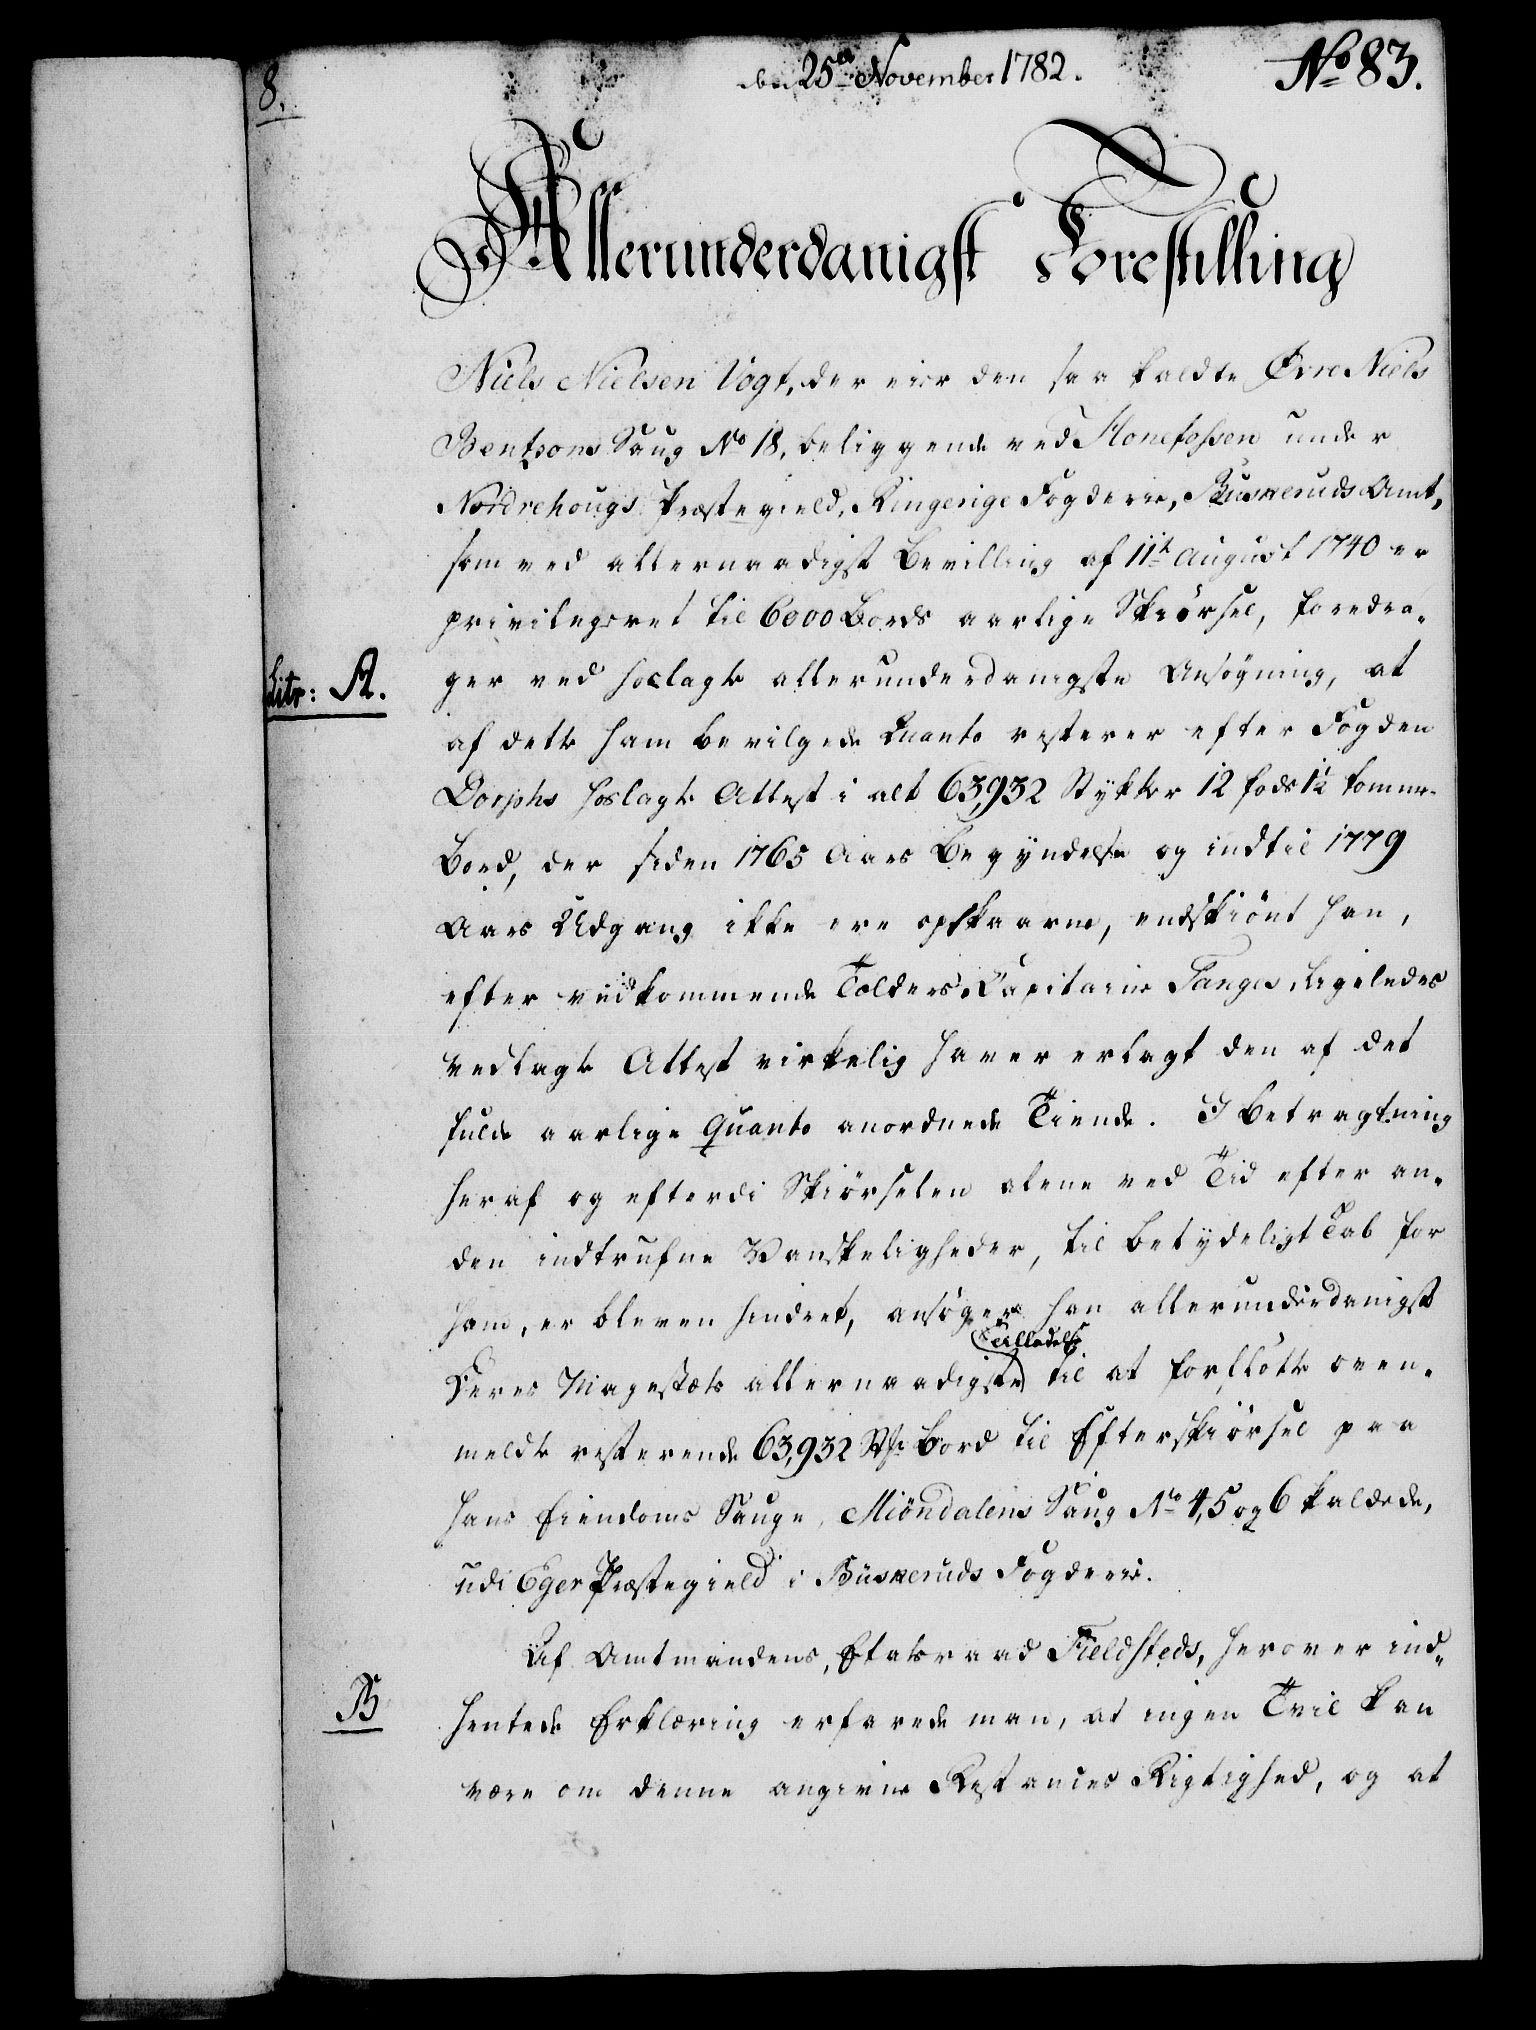 8.
den 25de November 1782.
No 83.
Allerunderdanigst Forestilling
Niels Nielsen Vogt, der eier den saa kaldte Øvre Niels
Bentsons Saug No 18, beliggende ved Honefossen under
Nordrehougs Præstegield, Ringerige Fogderie, Buskeruds Amt,
som ved allernaadigst Bevilling af 11te August 1740 er
privilegeret til 6000 Bords aarlige Skiørsel, foredra-
Litr: A.
ger ved hoslagte allerunderdanigste Ansøgning, at
af dette ham bevilgede Quanto resterer efter Fogden
Dorphs hoslagte Attest i alt 63,932 Stykker 12 fods 1¼ tomme
Bord, der siden 1765 Aars Begyndelse og indtil 1779
Aars Udgang ikke ere opskaarne, endskiønt han,
efter vedkommende Tolders, Capitaine Tanges, ligeledes
vedlagte Attest virkelig haver erlagt den af det
fulde aarlige Quanto anordnede Tiende. I betragtning
heraf og efterdi Skiørselen alene ved Tid efter an-
den indtrufne Vanskeligheder, til betydeligt Tab for
ham, er bleven hindret, ansøger han allerunderdanigst
Tilladelse
Deres Majestæts allernaadigste til at forflötte oven-
meldte resterende 63,932 St: Bord til Efterskiørsel paa
hans Eiendoms Sauge, Miöndalens Saug No 4, 5 og 6 kaldede,
udi Eger Præstegield i Buskeruds Fogderie.
Af Amtmandens, Etatsraad Fieldsteds, herover ind-
B
hentede Erklæring erfarede man, at ingen Tvil kan
være om denne angivne Restances Rigtighed, og at